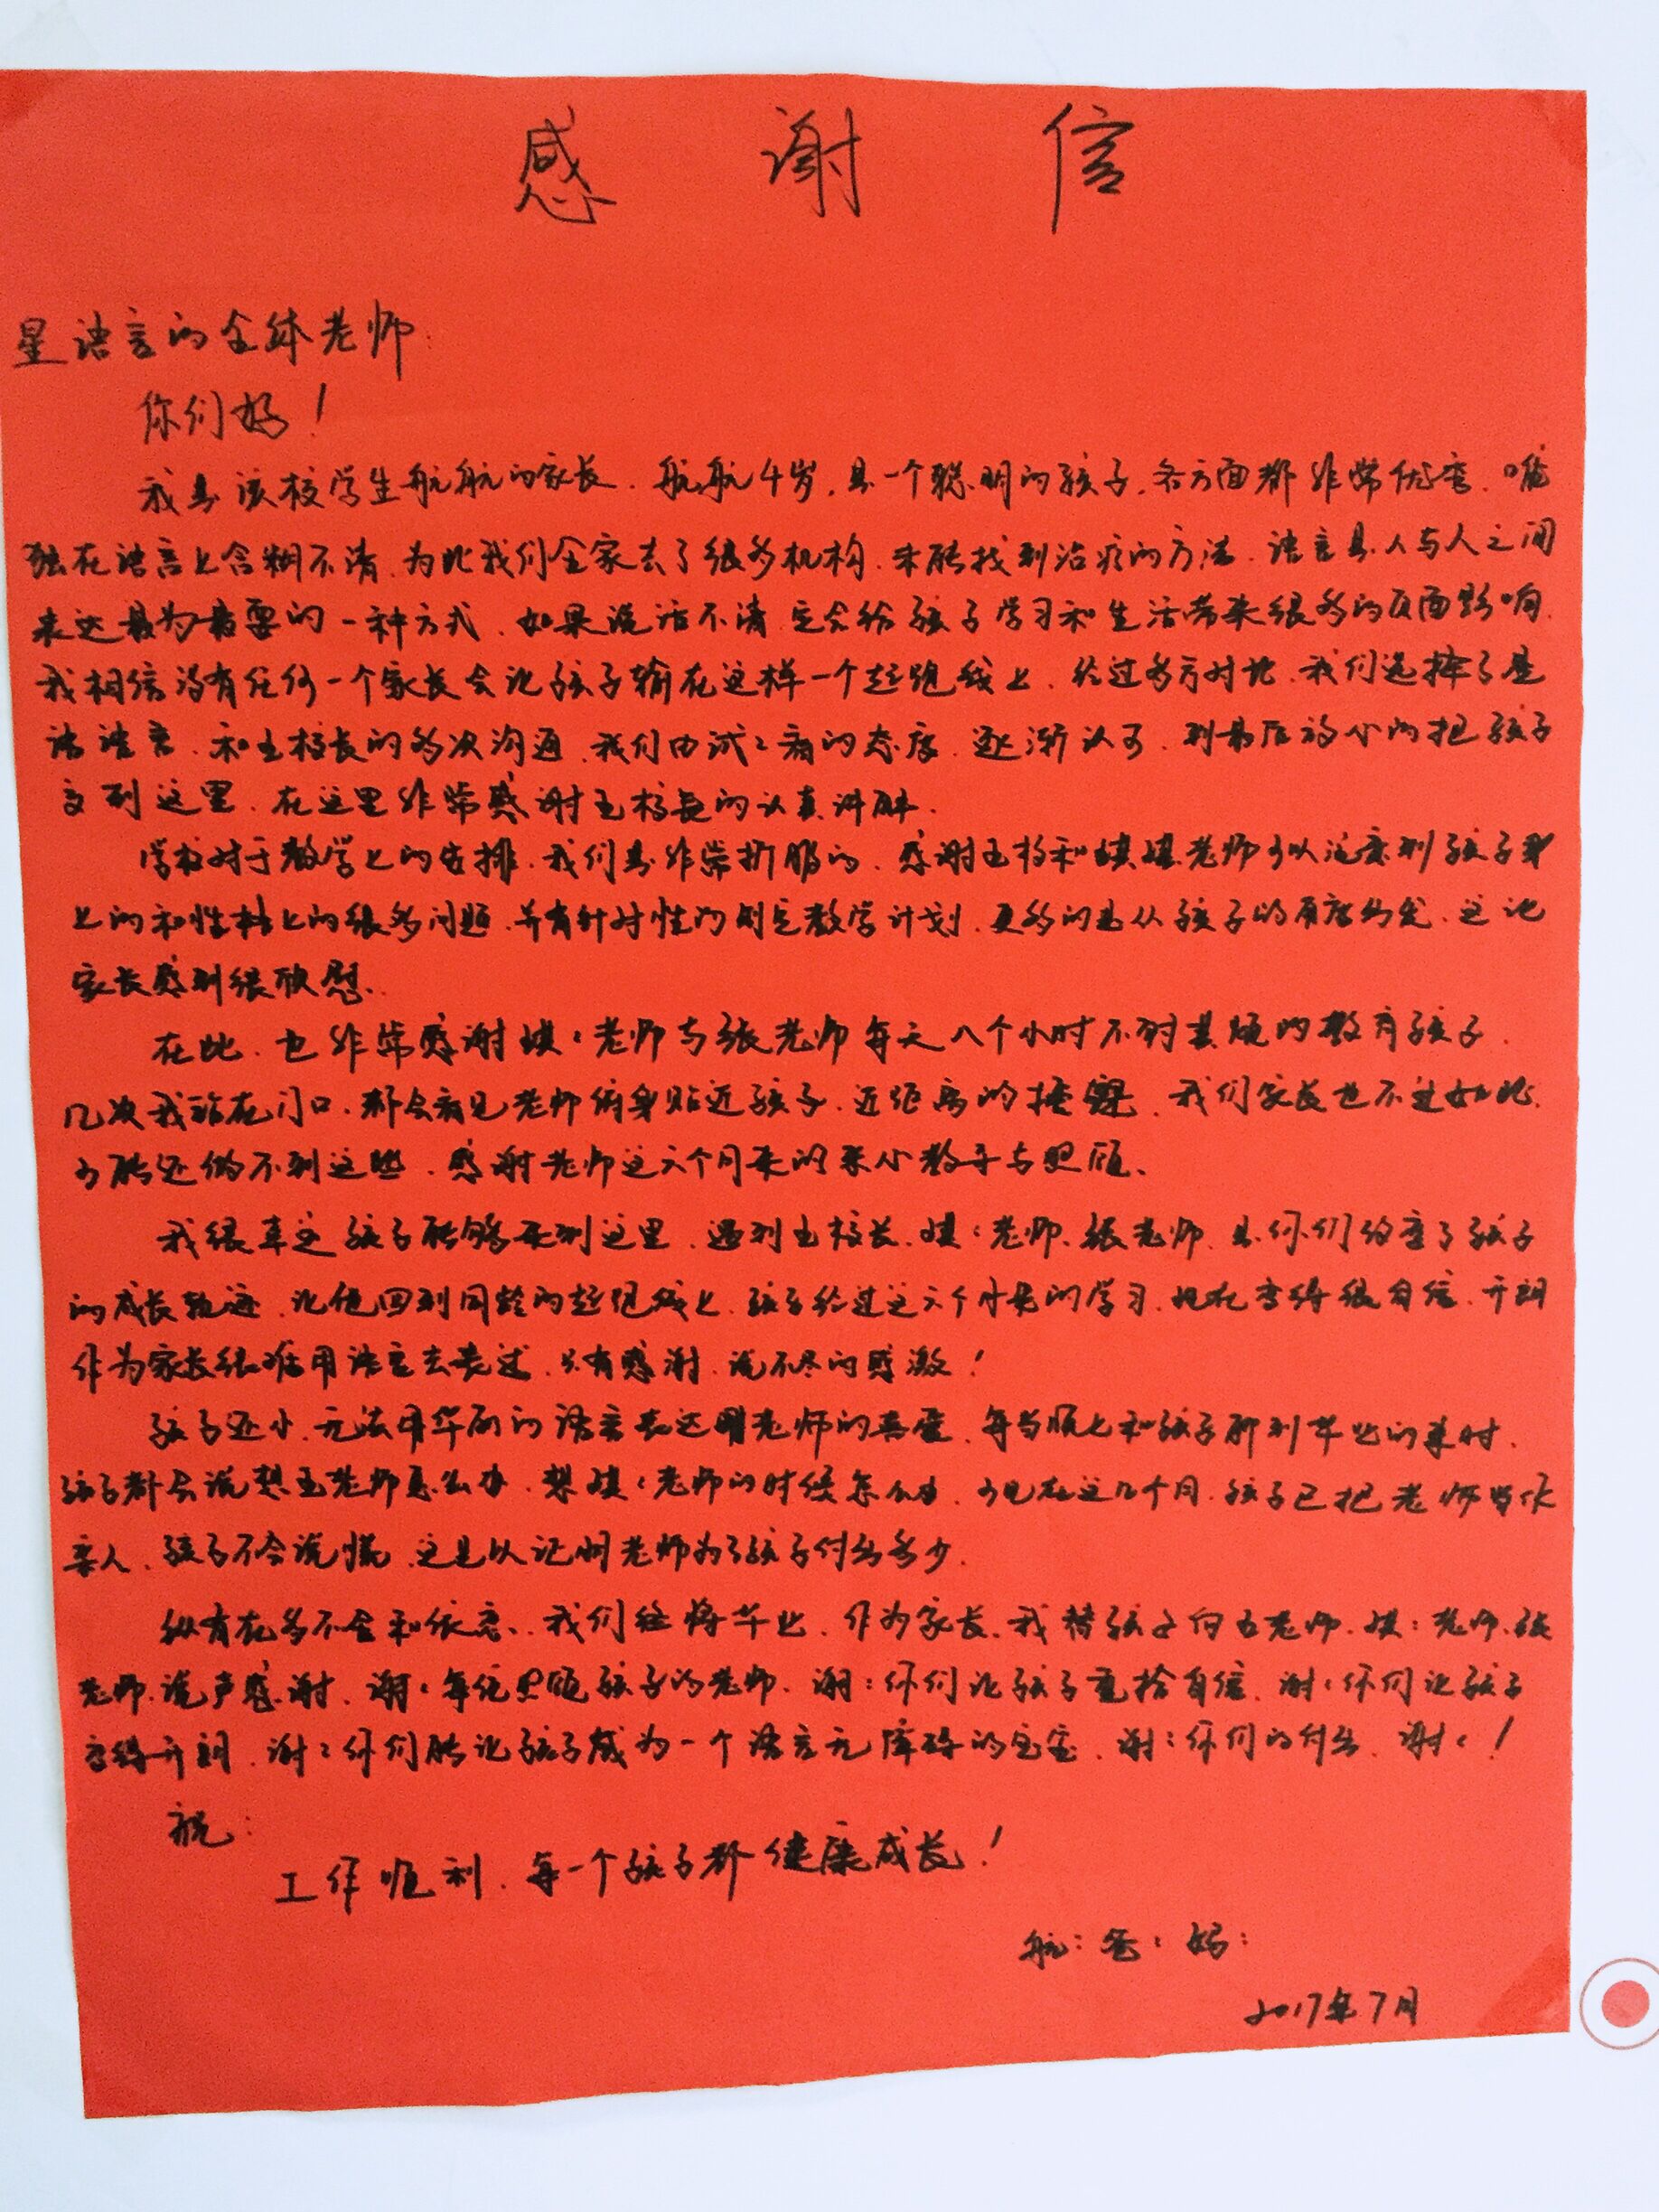 感谢信
星语言的全体老师:
你们好！
我是该校学生航航的家长.航航4岁,是一个聪明的孩子,各方面都非常优秀.唯
独在语言上含糊不清.为此我们全家去了很多机构.未能找到治疗的方法.语言是人与人之间
表达最为重要的一种方式.如果说话不清.定会给孩子学习和生活带来很多的负面影响.
我相信没有任何一个家长会让孩子输在这样一个起跑线上.经过多方对比.我们选择了星
语言.和王校长的多次沟通.我们由试:看的态度.逐渐认可.到最后放心的把孩子
交到这里.在这里非常感谢王校长的认真讲解.
学校对于教学上的安排.我们是非常折服的.感谢王校和琪琪老师可以注意到孩子身
上的和性格上的很多问题.并有针对性的制定教学计划.更多的是从孩子的角度出发.这让
家长感到很欣慰.
在此.也非常感谢琪:老师与张老师每天八个小时不对其烦的教育孩子.
几次我站在门口.都会看见老师俯身贴近孩子.近距离的接.我们家长也不过如此.
可能还做不到这些.感谢老师这六个月来的来心教导与照顾.
我很幸运孩子能够来到这里.遇到王校长.琪:老师.张老师.是你们改变了孩子
的成长轨迹.让他回到同龄的起跑线上.孩子经过这六个月来的学习.现在变得很自信.开朗
作为家长很难用语言去表述.只有感谢.说不尽的感激！
孩子还小.无法用华丽的语言表达对老师的喜爱.每当和孩子聊到毕业的事时.
孩子都会说想王老师怎么办.想琪:老师的时候怎么办.可见在这几个月.孩子已把老师当作
亲人.孩子不会说慌.这足以证明老师为了孩子付出多少.
纵有在多不舍和依恋.我们终将毕业.作为家长.我替孩子向王老师.琪:老师.张
老师.说声感谢.谢:每位照顾孩子的老师.谢:你们让孩子重拾自信.谢:你们让孩子
变得开朗.谢:你们能让孩子成为一个语言无障碍的宝宝.谢:你们的付出.谢:！
祝:
工作顺利.每一个孩子都健康成长！
航:爸:妈:
2017年7月